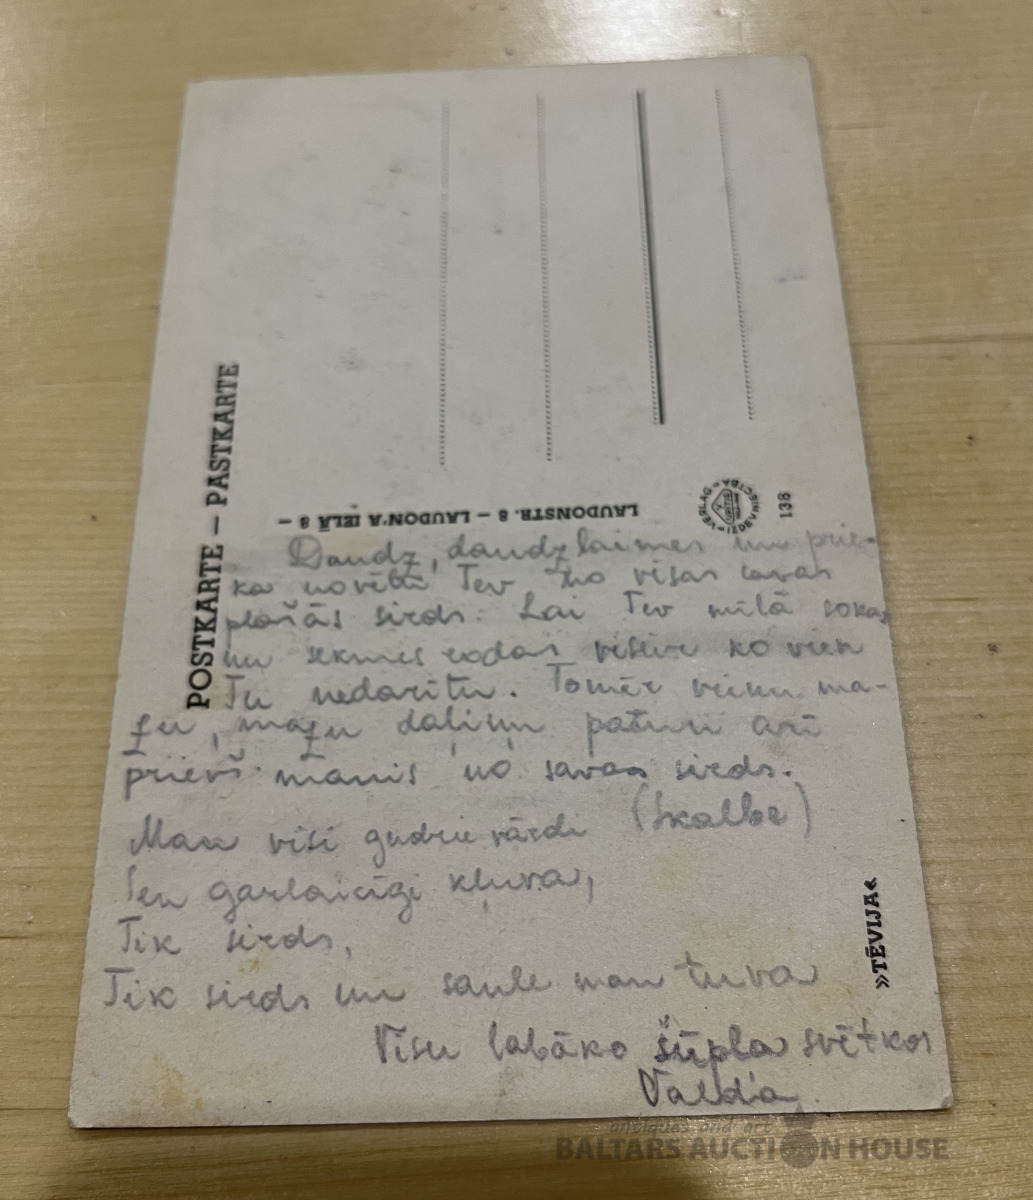 POSTKARTE – PASTKARTE
LAUDONSTR. 8 – LAUDON'A IELĀ 8 –
VERLAG – IZDEVNIECĪBA
138
»TĒVIJA«
Daudz, daudz laimes un prie-
ka novēlu Tev no visas savas
plašās sirds. Lai Tev mīlā sokas
un sekmes rodas visur ko vien
Tu nedarītu. Tomēr vienu ma-
zu, mazu daļiņu paturi arī
priekš manis no savas sirds.
(Skalbe)
Man visi gudrie vārdi
Sen garlaicīgi kļuva,
Tik sirds,
Tik sirds un saule man tuva
Visu labāko šūpļa svētkos
Valda
antiques and art
BALTARS AUCTION HOUSE